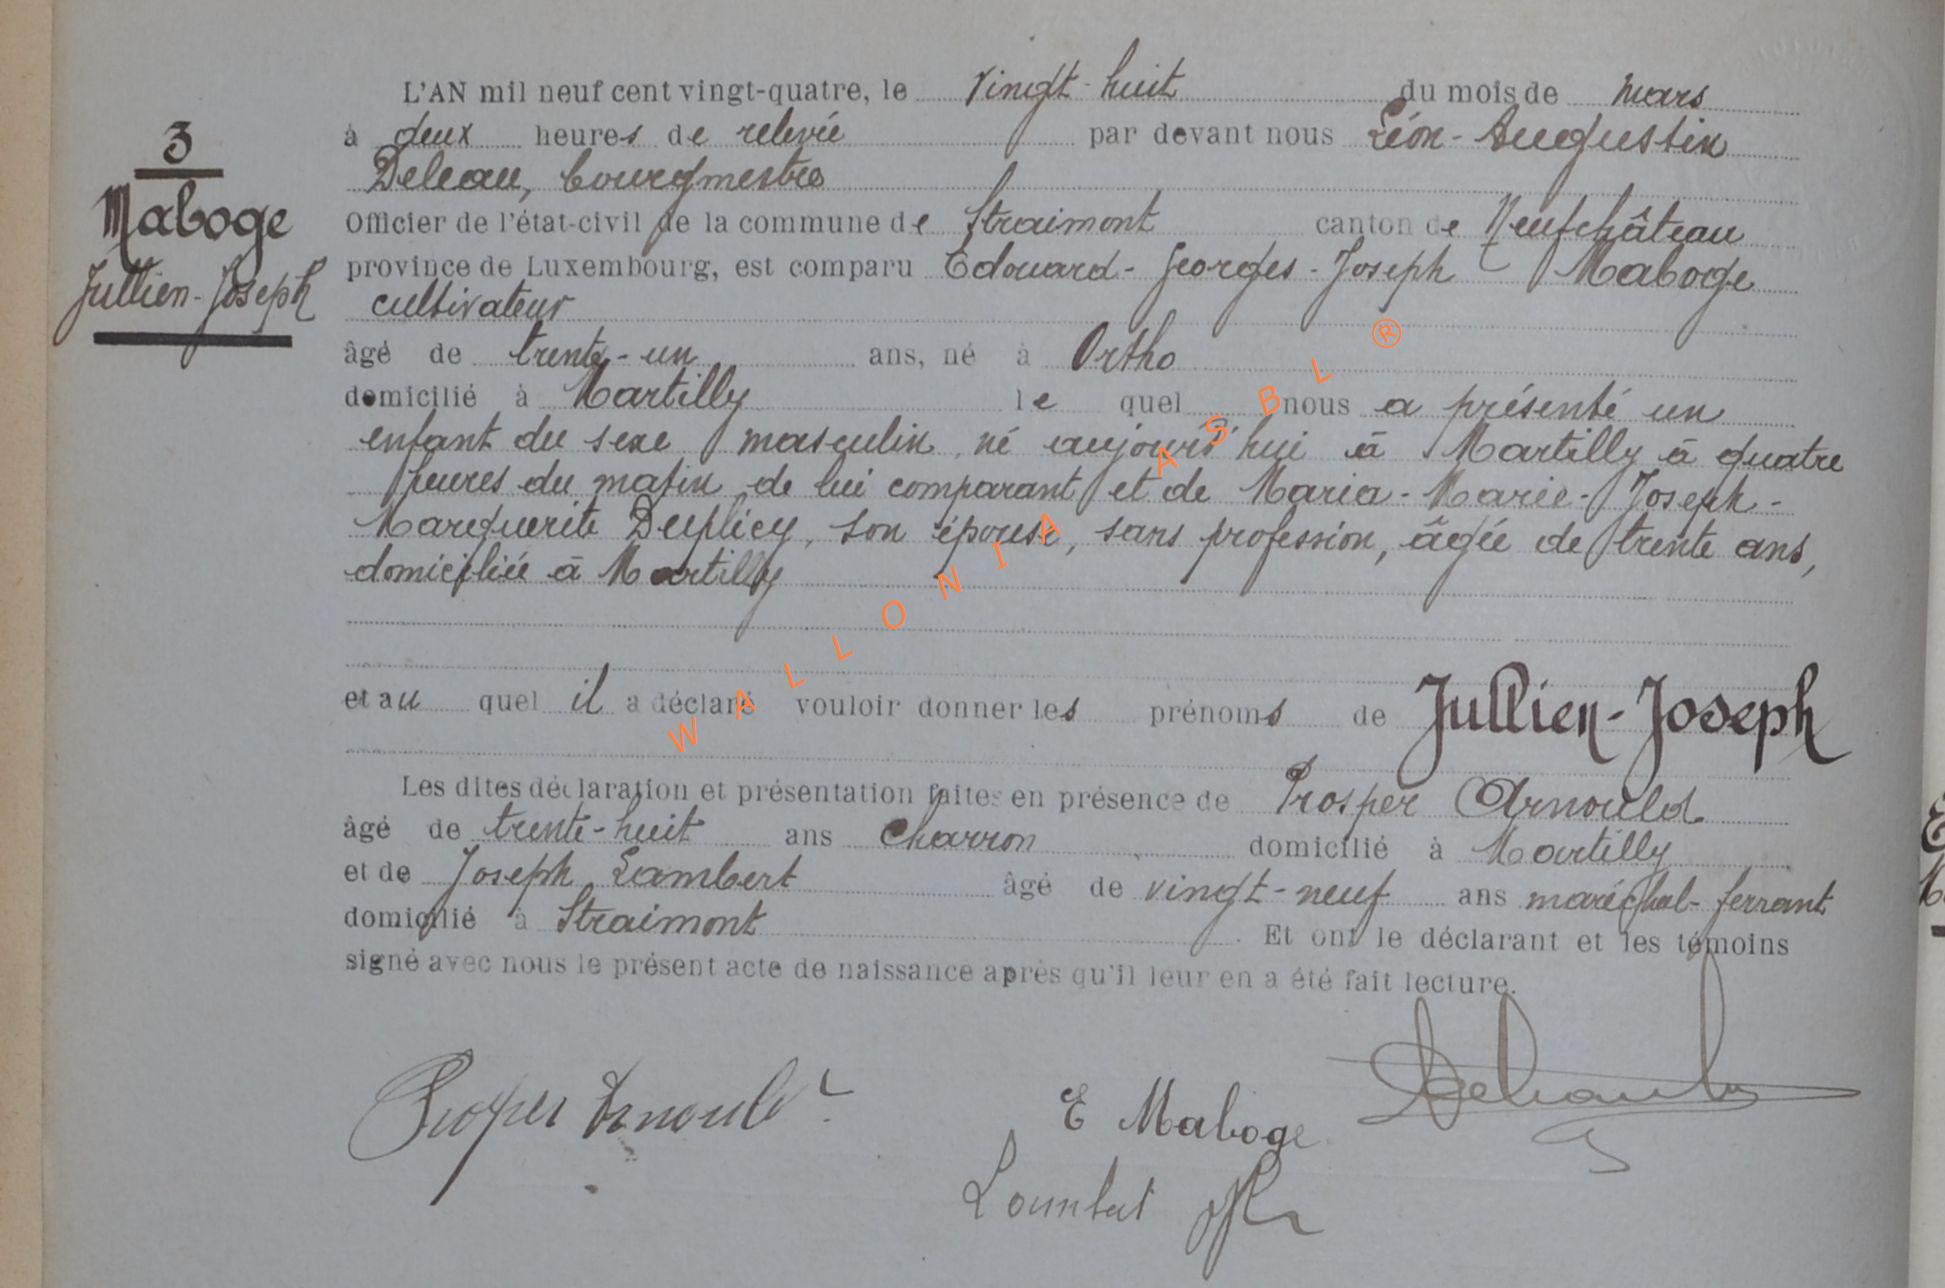 3
Maboge
Jullien-Joseph
L'AN mil neuf cent vingt-quatre, le vingt-huit du mois de mars
à deux heures de relevée par devant nous Léon-Augustin
Deleau, bourgmestre
Officier de l'état-civil de la commune de Straimont canton de Neufchâteau
province de Luxembourg, est comparu Edouard-Georges-Joseph Maboge
cultivateur
âgé de trente-un ans, né à Ortho
domicilié à Martilly le quel nous a présenté un
enfant du sexe masculin, né aujourd'hui à Martilly à quatre
heures du matin de lui comparant et de Maria-Marie-Joseph-
Marguerite Duplicy, son épouse, sans profession, âgée de trente ans,
domiciliée à Martilly
et au quel il a déclaré vouloir donner les prénoms de Jullien-Joseph
Les dites déclaration et présentation faites en présence de Prosper Arnould
âgé de trente-huit ans charron domicilié à Martilly
et de Joseph Lambert âgé de vingt-neuf ans maréchal-ferrant
domicilié à Straimont. Et ont le déclarant et les témoins
signé avec nous le présent acte de naissance après qu'il leur en a été fait lecture.
Prosper Arnould
E Maboge
Lambert
WALLONIA ASBL ®